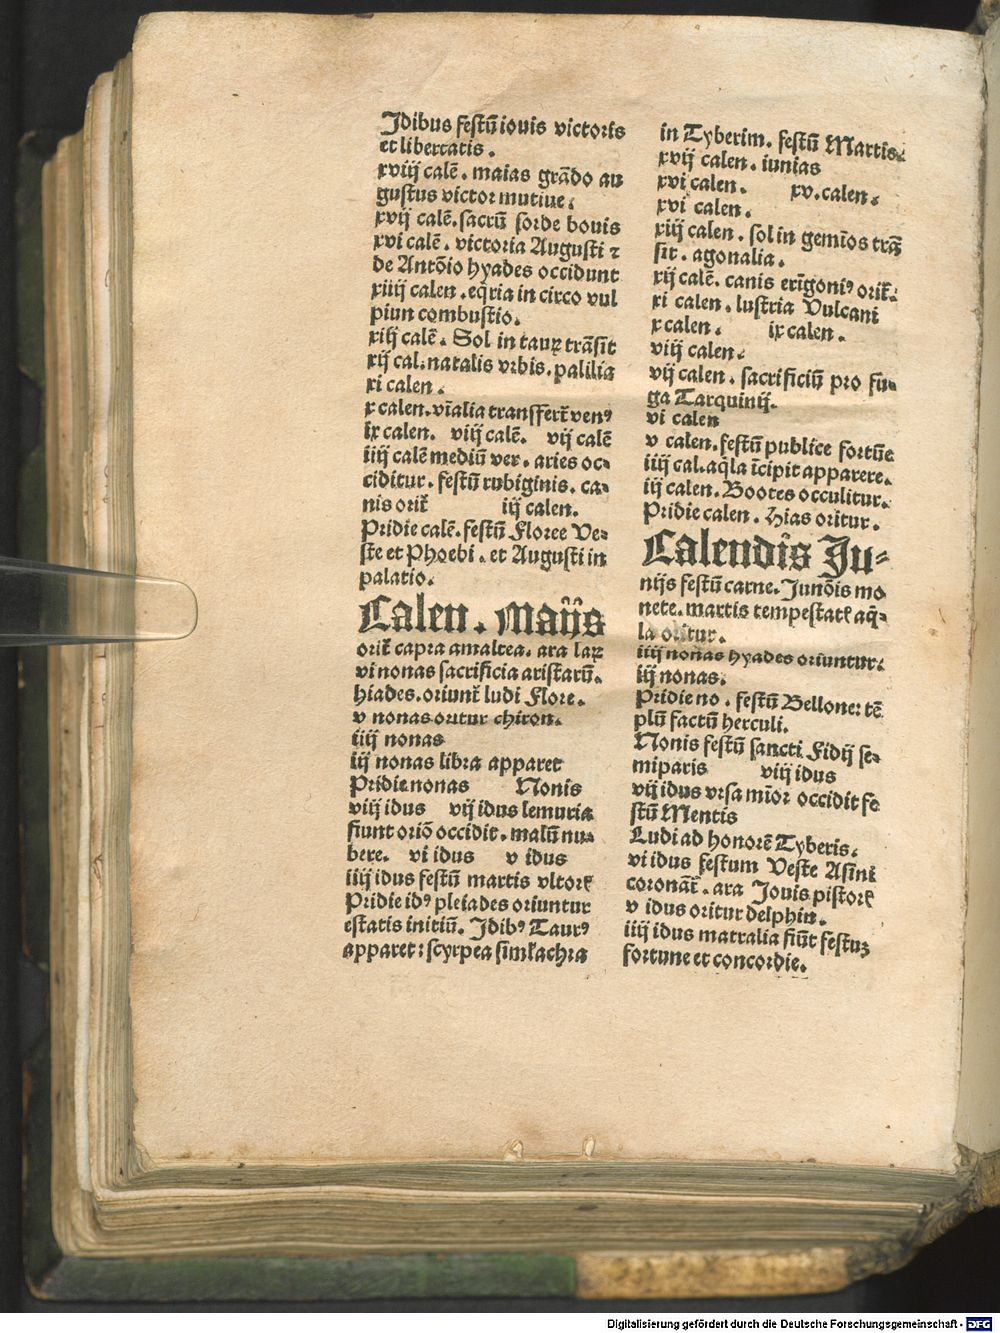 Idibus festū iouis victoris
et libertatis.
xviij calē. maias grādo au
gustus victor mutine.
xvij calē. sacrū forde bouis
xvi calē. victoria Augusti ⁊
de Antōio hyades occidunt
xiiij calen. eq̄ria in circo vul
piun combustio.
xiij calē. Sol in tauꝝ trāsit
xij cal. natalis vrbis. palilia
xi calen.
x calen. vīalia transfert̄ venꝰ
ix calen. viij calē. vij calē
iiij calē mediū ver. aries oc-
ciditur. festū rubiginis. ca-
nis orit̄ iij calen.
Pridie calē. festū Floree Ve-
ste et Phoebi. et Augusti in
palatio.
Calen. Maijs
orit̄ capra amaltea. ara laꝝ
vi nonas sacrificia aristarū.
hiades. oriunt̄ ludi Flore.
v nonas oritur chiron.
iiij nonas
iij nonas libra apparet
Pridie nonas Nonis
viij idus vij idus lemuria
fiunt oriō occidit. malū nu-
bere. vi idus v idus
iiij idus festū martis vltorꝭ
Pridie idꝰ pleiades oriuntur
estatis initiū. Idibꝰ Taurꝰ
apparet: scyrpea siml̄achra
in Tyberim. festū Martis.
xvij calen. iunias
xvi calen. xv. calen.
xvi calen.
xiij calen. sol in gemīos trā
sit. agonalia.
xij calē. canis erīgoniꝰ orit̄.
xi calen. lustria Vulcani
x calen. ix calen.
viij calen.
vij calen. sacrificiū pro fu-
ga Tarquinij.
vi calen
v calen. festū publice fortūe
iiij cal. aq̄la īcipit apparere.
iij calen. Bootes occulitur.
Pridie calen. Hias oritur.
Calendis Ju-
nijs festū carne. Junōis mo
nete. martis tempestatꝭ aq̄-
la oritur.
iiij nonas hyades oriuntur.
iij nonas.
Pridie no. festū Bellone: tē
plū factū herculi.
Nonis festū sancti Fidij se-
miparis viij idus
vij idus vrsa mīor occidit fe
stū Mentis
Ludi ad honorē Tyberis.
vi idus festum Veste Asini
coronāt̄. ara Jouis pistorꝭ
v idus oritur delphin.
iiij idus matralia fiūt festuꝫ
fortune et concordie.
Digitalisierung gefördert durch die Deutsche Forschungsgemeinschaft - DFG